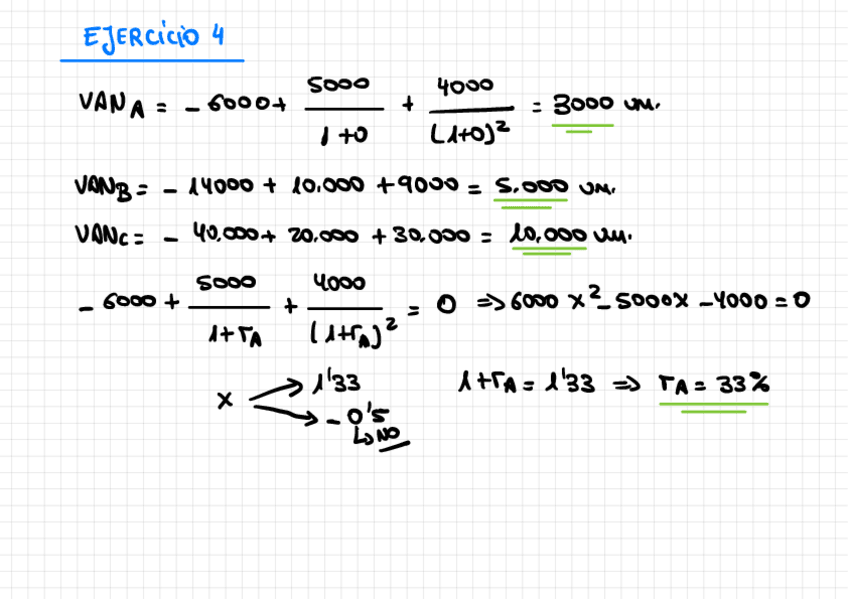 EJERCICIO 4
VAN_A = - 6000 + 5000/(1+0) + 4000/(1+0)² = 3000 um.
VAN_B = - 14000 + 10.000 + 9000 = 5.000 um.
VAN_C = - 40.000 + 20.000 + 30.000 = 10.000 um.
- 6000 + 5000/(1+r_A) + 4000/(1+r_A)² = 0 => 6000 x² - 5000x - 4000 = 0
x → 1'33 1+r_A = 1'33 => r_A = 33%
→ - 0'5
↳ NO